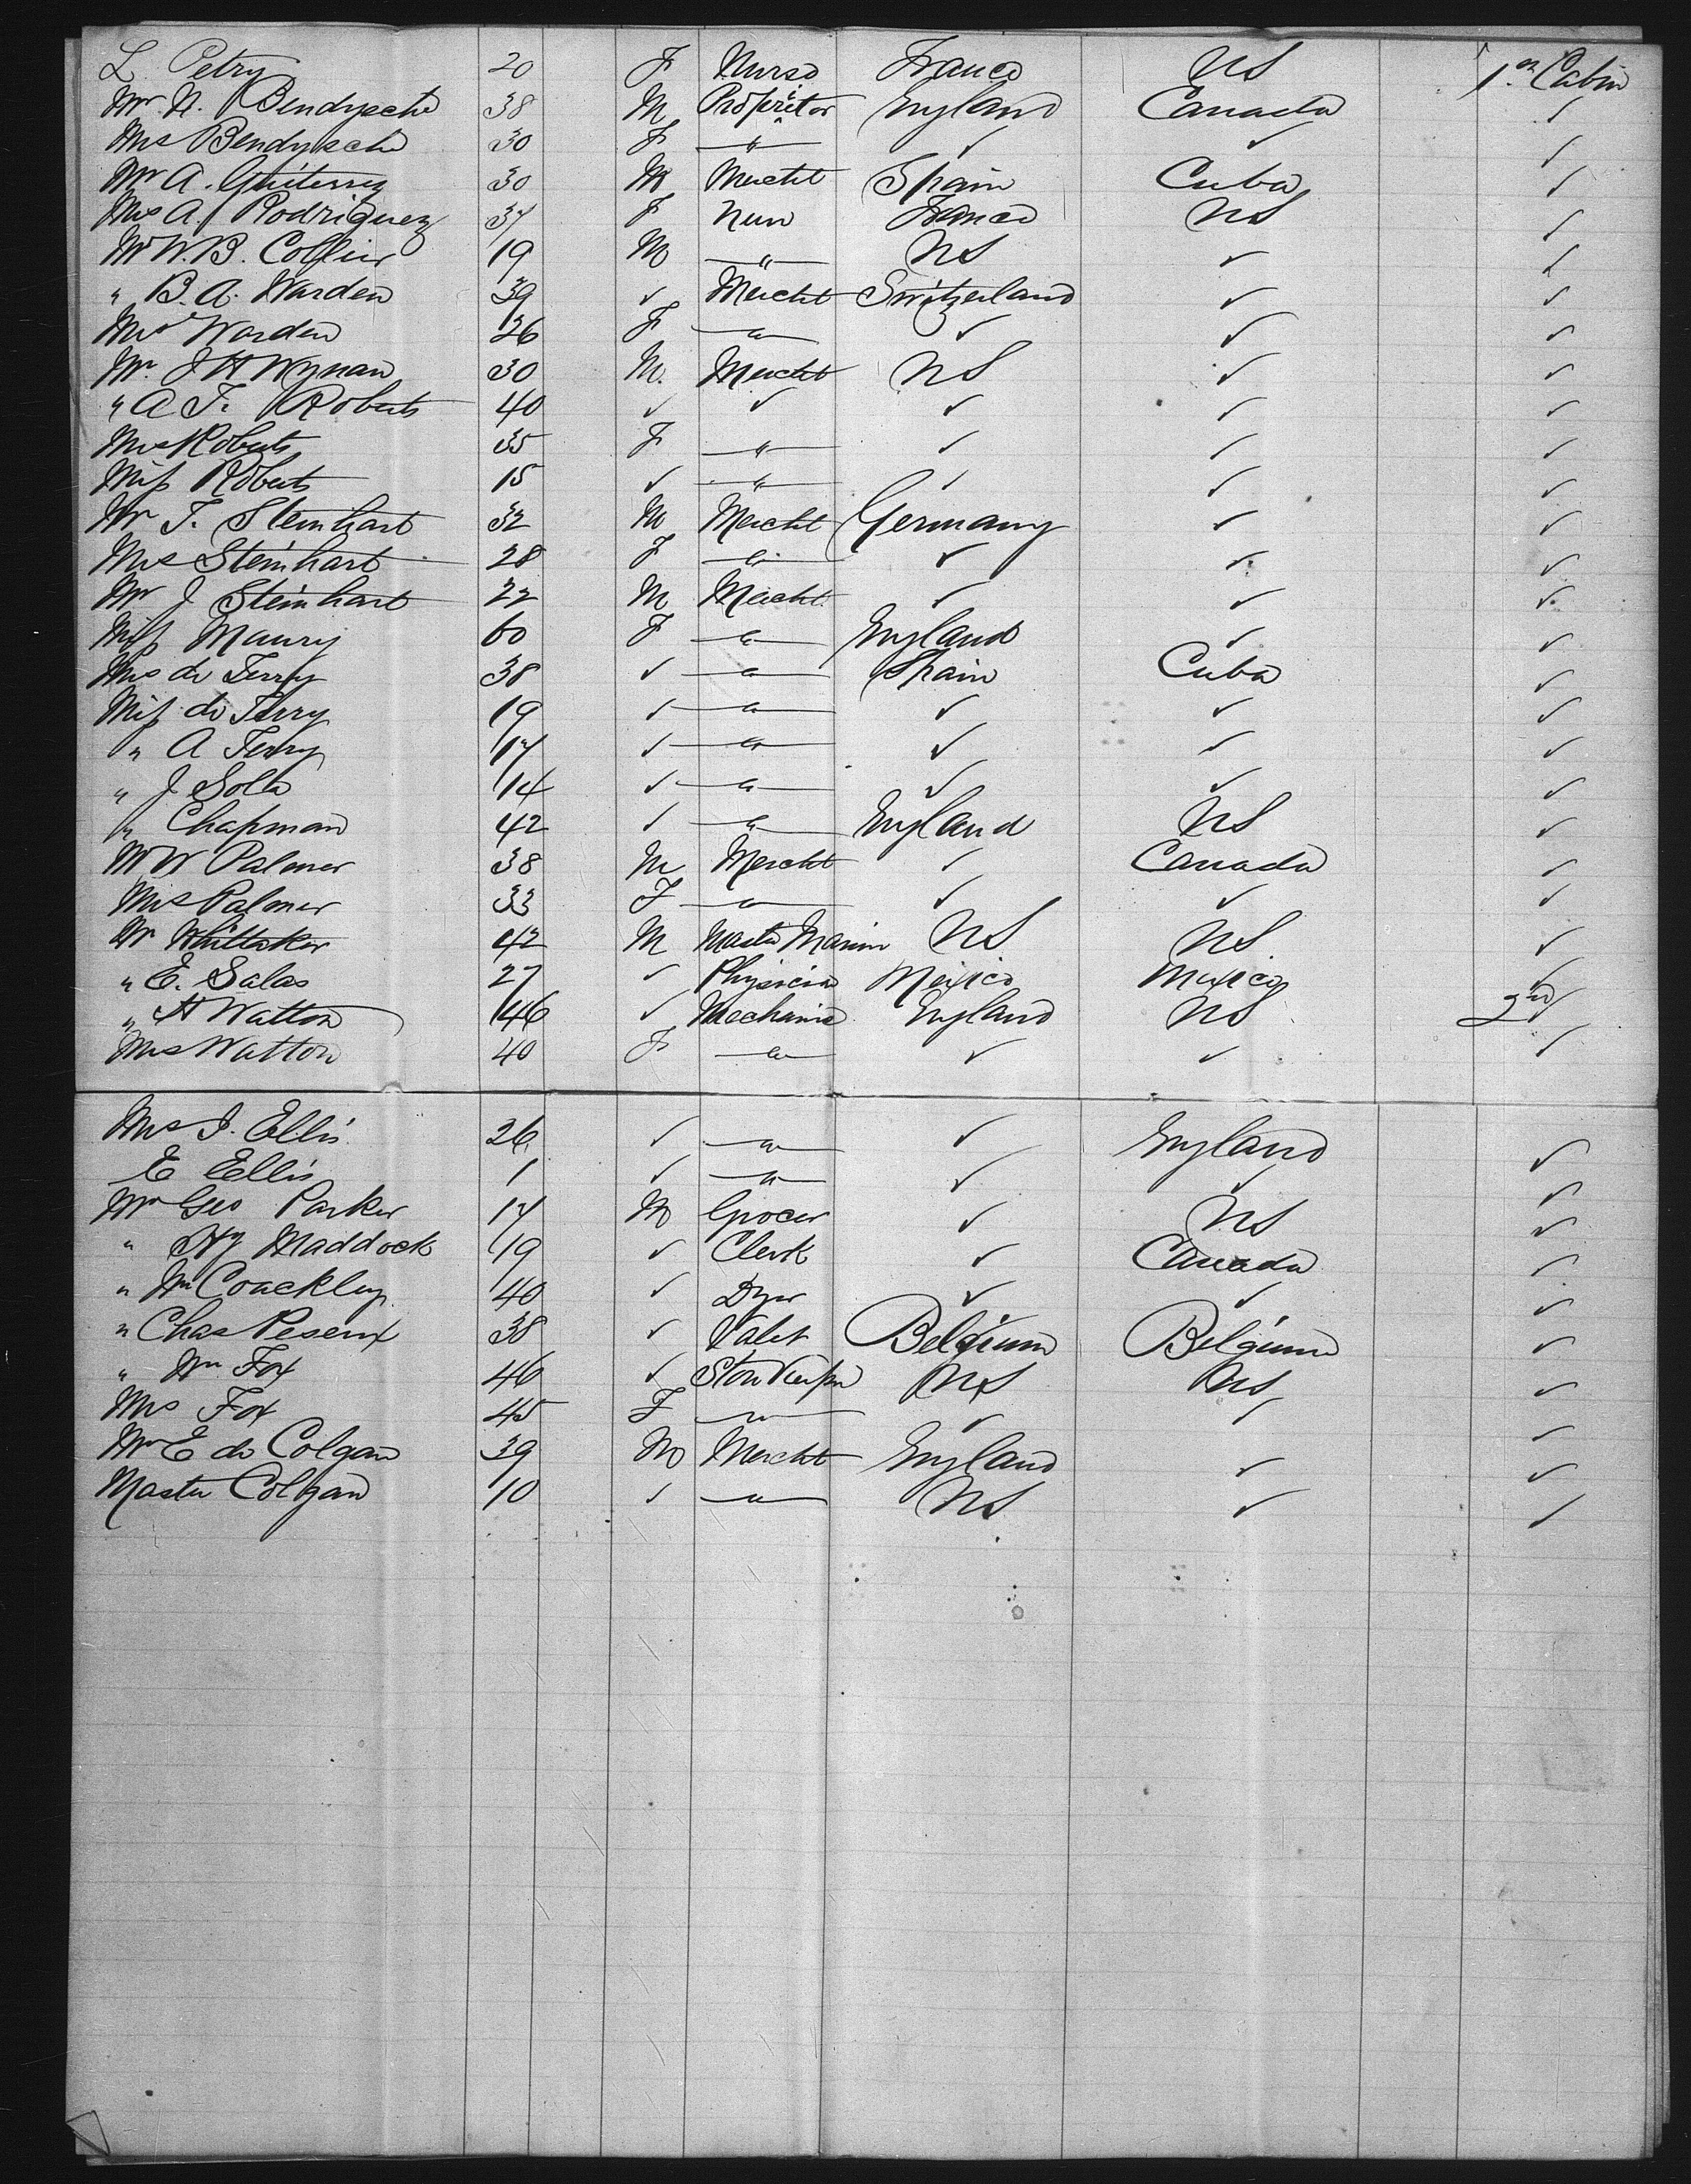 L. Petry 20 F Nurse France US 1st Cabin
Mr. N. Bendysche 38 M Proprietor England Canada ✓
Mrs Bendysche 30 F " ✓ ✓ ✓
Mr A. Guiterrez 30 M Mercht Spain Cuba ✓
Mrs A. Rodriguez 37 F Nun France US ✓
Mr W. B. Collier 19 M " US ✓ ✓
" B. A. Warden 39 ✓ Mercht Switzerland ✓ ✓
Mrs Warden 36 F " ✓ ✓ ✓
Mr. J H Wyman 30 M. Mercht US ✓ ✓
" A F. Roberts 40 ✓ ✓ ✓ ✓ ✓
Mrs Roberts 35 F " ✓ ✓ ✓
Miss Roberts 15 ✓ " ✓ ✓ ✓
Mr T. Steinhart 32 M Mercht Germany ✓ ✓
Mrs Steinhart 28 F " ✓ ✓ ✓
Mr J Steinhart 22 M Mercht ✓ ✓ ✓
Miss Maury 60 F " England ✓ ✓
Mrs de Terry 38 ✓ " Spain Cuba ✓
Miss de Terry 19 ✓ " ✓ ✓ ✓
" A Terry 17 ✓ " ✓ ✓ ✓
" J Sola 14 ✓ " ✓ ✓ ✓
" Chapman 42 ✓ " England US ✓
Mr W Palmer 38 M Mercht ✓ Canada ✓
Mrs Palmer 33 F " ✓ ✓ ✓
Mr Whittaker 42 M Master Marin US US ✓
" E. Salas 27 ✓ Physician Mexico Mexico ✓
" H Watton 46 ✓ Mechanic England US 2nd
Mrs Watton 40 F " ✓ ✓ ✓
Mrs J. Ellis 26 ✓ " ✓ England ✓
E Ellis 1 ✓ " ✓ ✓ ✓
Mr Geo Parker 17 M Grocer ✓ US ✓
" Hy Maddock 19 ✓ Clerk ✓ Canada ✓
" Wm Coackley 40 ✓ Dyer ✓ ✓ ✓
" Chas 38 ✓ Valet Belgium Belgium ✓
" Wm Fox 46 ✓ Store Keeper US US ✓
Mrs Fox 45 F " ✓ ✓ ✓
Mr E de Colgan 39 M Mercht England ✓ ✓
Master Colgan 10 ✓ " US ✓ ✓